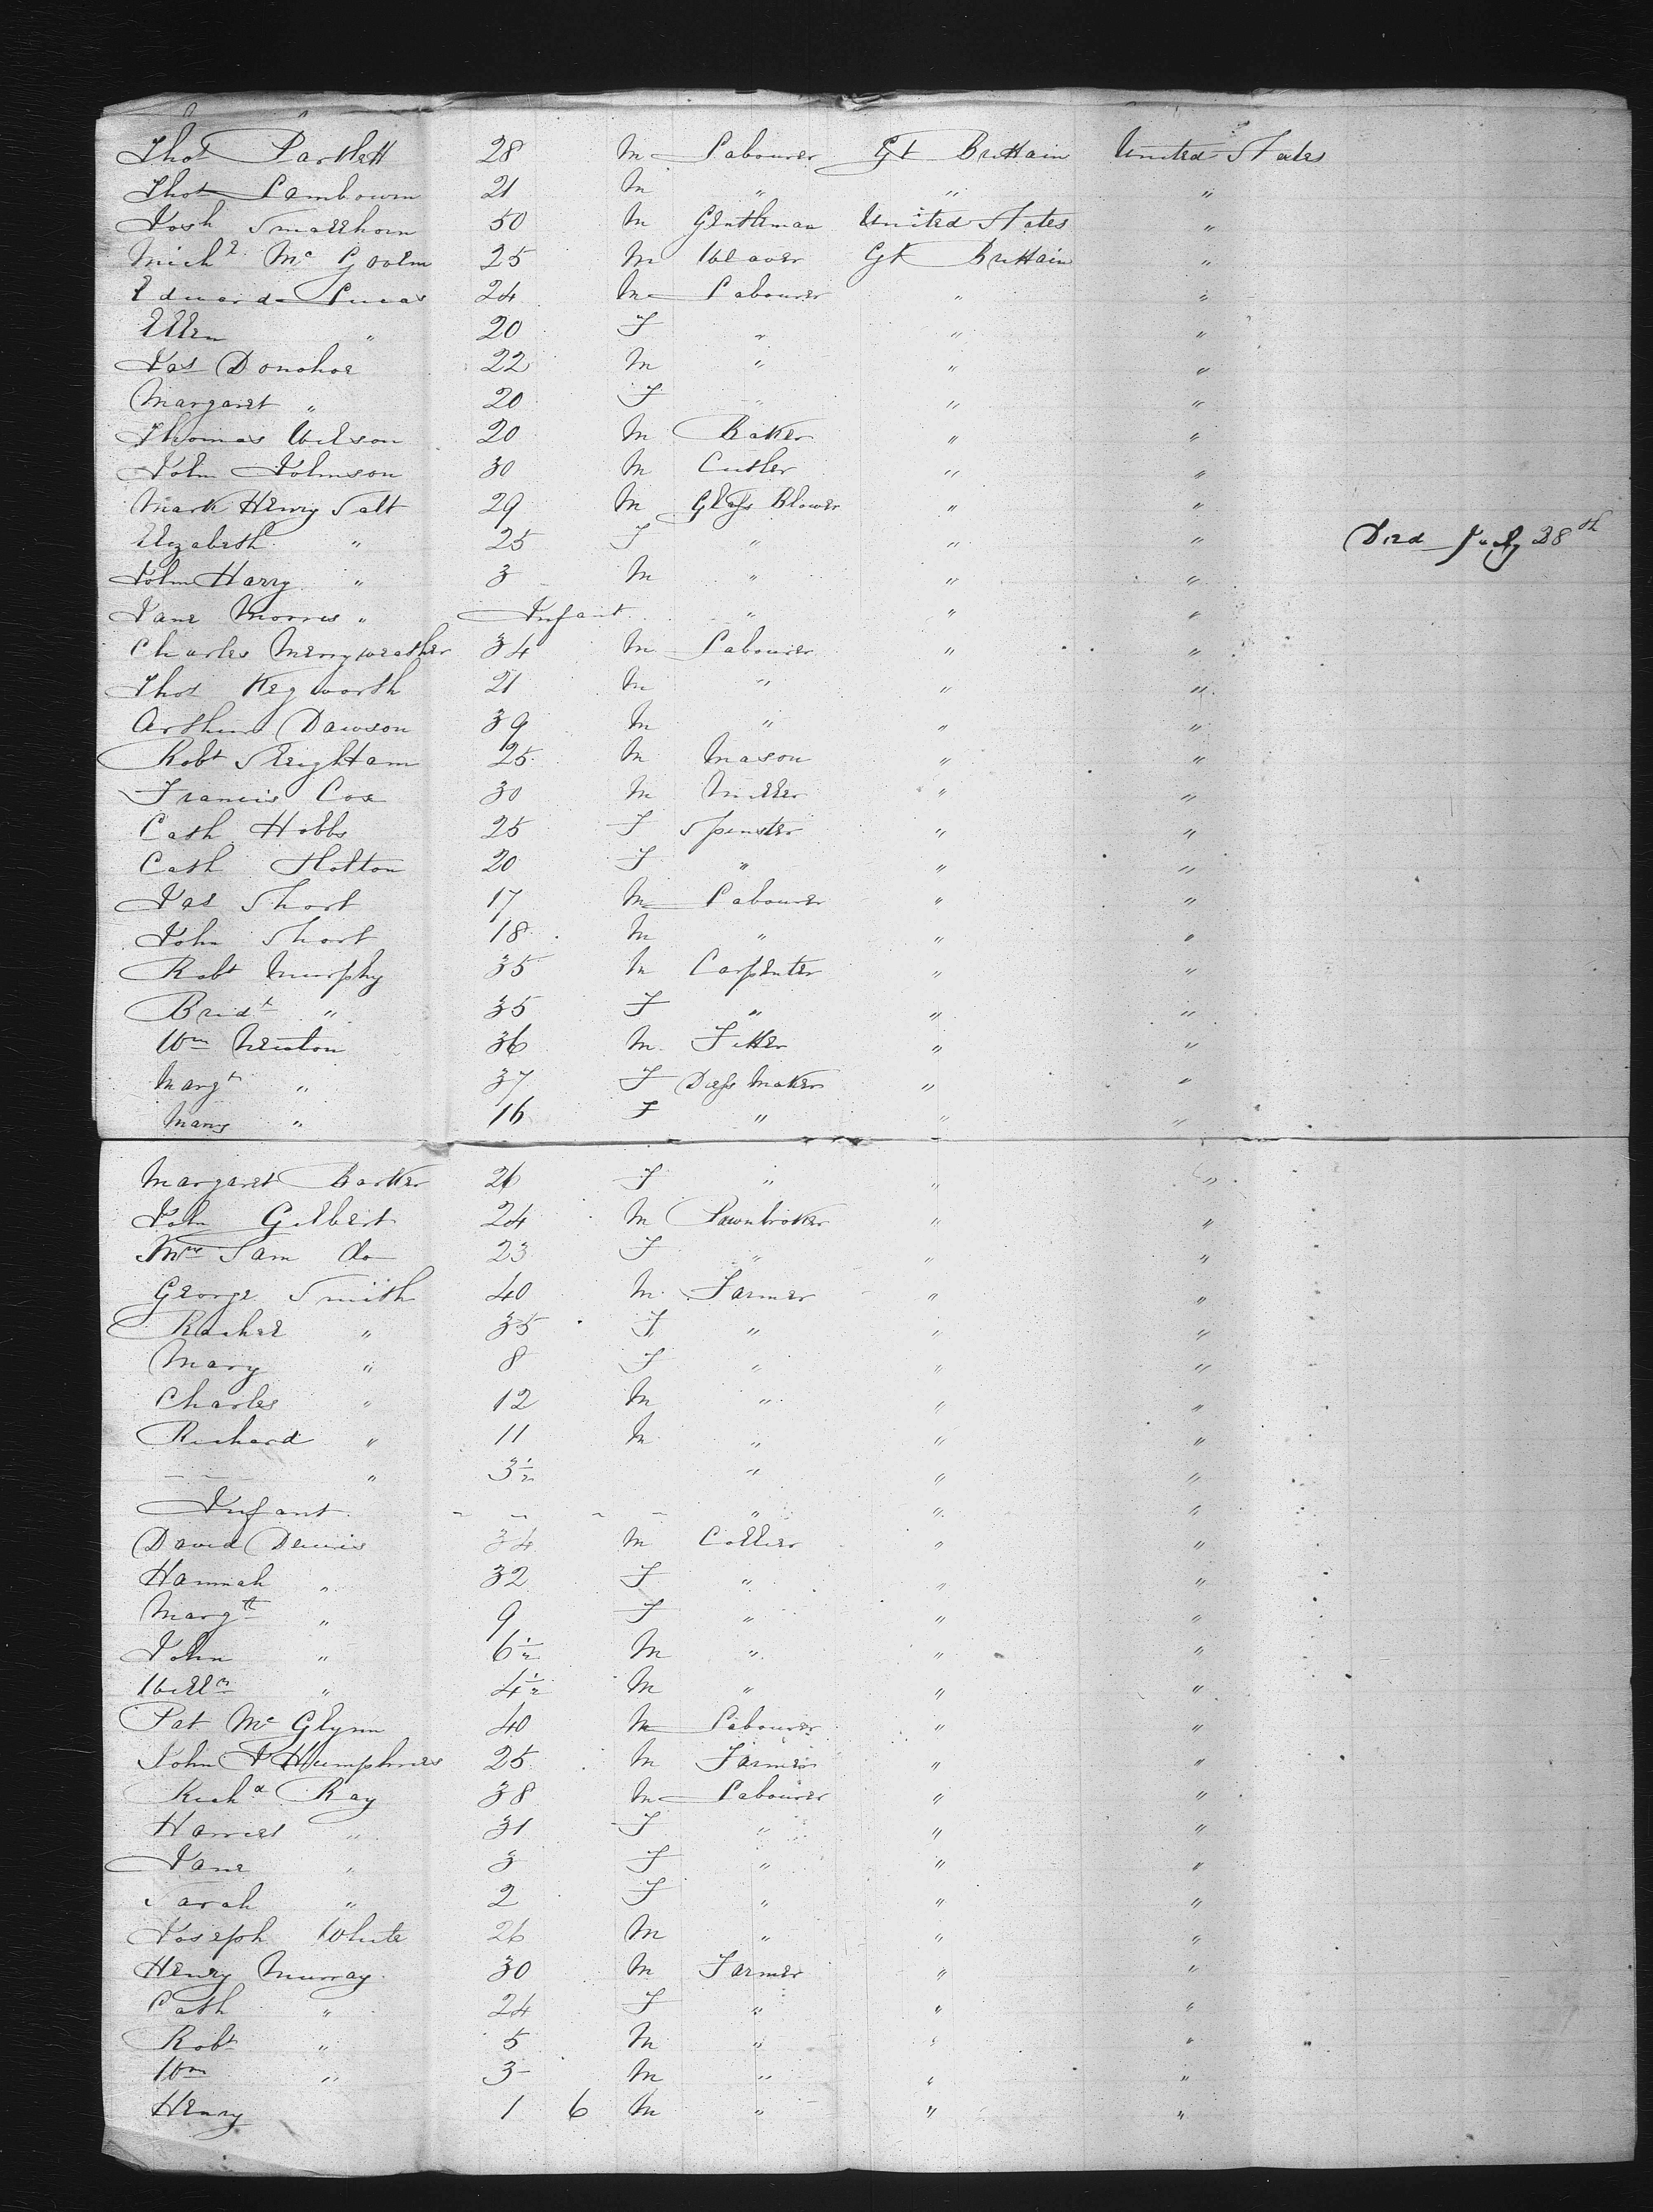 Thos Bartlett 28 M Labourer Gt Brittain United States
Thos 21 M " " "
Josh Smallhorn 50 M Gentleman United States "
Michl Mc 25 M Weaver Gt Brittain "
Edward Lucas 24 M Labourer " "
Ellen " 20 F " " "
Jas Donohoe 22 M " " "
Margaret " 20 F " " "
Thomas Wilson 20 M Baker " "
John Johnson 30 M Cutler " "
Mark Henry Salt 29 M Glass Blower " "
Elizabeth " 25 F " " " Died July 28th
John Harry " 3 M " " "
Jane Morris " Infant " " "
Charles Merryweather 34 M Labourer " "
Thos Kegworth 21 M " " "
Arthur Dawson 39 M " " "
Robt 25 M Mason " "
Francis Cox 30 M Miller " "
Cath Hobbs 25 F Spinster " "
Cath Holton 20 F " " "
Jas Short 17 M Labourer " "
John Short 18 M " " "
Robt Murphy 35 M Carpenter " "
Bridt " 35 F " " "
Wm Newton 36 M Fitter " "
Margt " 37 F Dress Maker " "
Mary " 16 F " " "
Margaret Barker 26 F " " "
John Gilbert 24 M Pawnbroker " "
Mrs Sam do 23 F " " "
George Smith 40 M Farmer " "
Rachel " 35 F " " "
Mary " 8 F " " "
Charles " 12 M " " "
Richard " 11 M " " "
- - - " 3½ " " "
Infant - - - - " " "
David Dennis 34 M Collier " "
Hannah " 32 F " " "
Margtt " 9 F " " "
John " 6½ M " " "
Willm " 4½ M " " "
Pat Mc Glynn 40 M Labourer " "
John Humphries 25 M Farmer " "
Richd Ray 38 M Labourer " "
Harriet " 31 F " " "
Jane " 3 F " " "
Sarah " 2 F " " "
Joseph White 26 M " " "
Henry Murray 30 M Farmer " "
Cath " 24 F " " "
Robt " 5 M " " "
Wm " 3 M " " "
Henry 1 6 M " " "